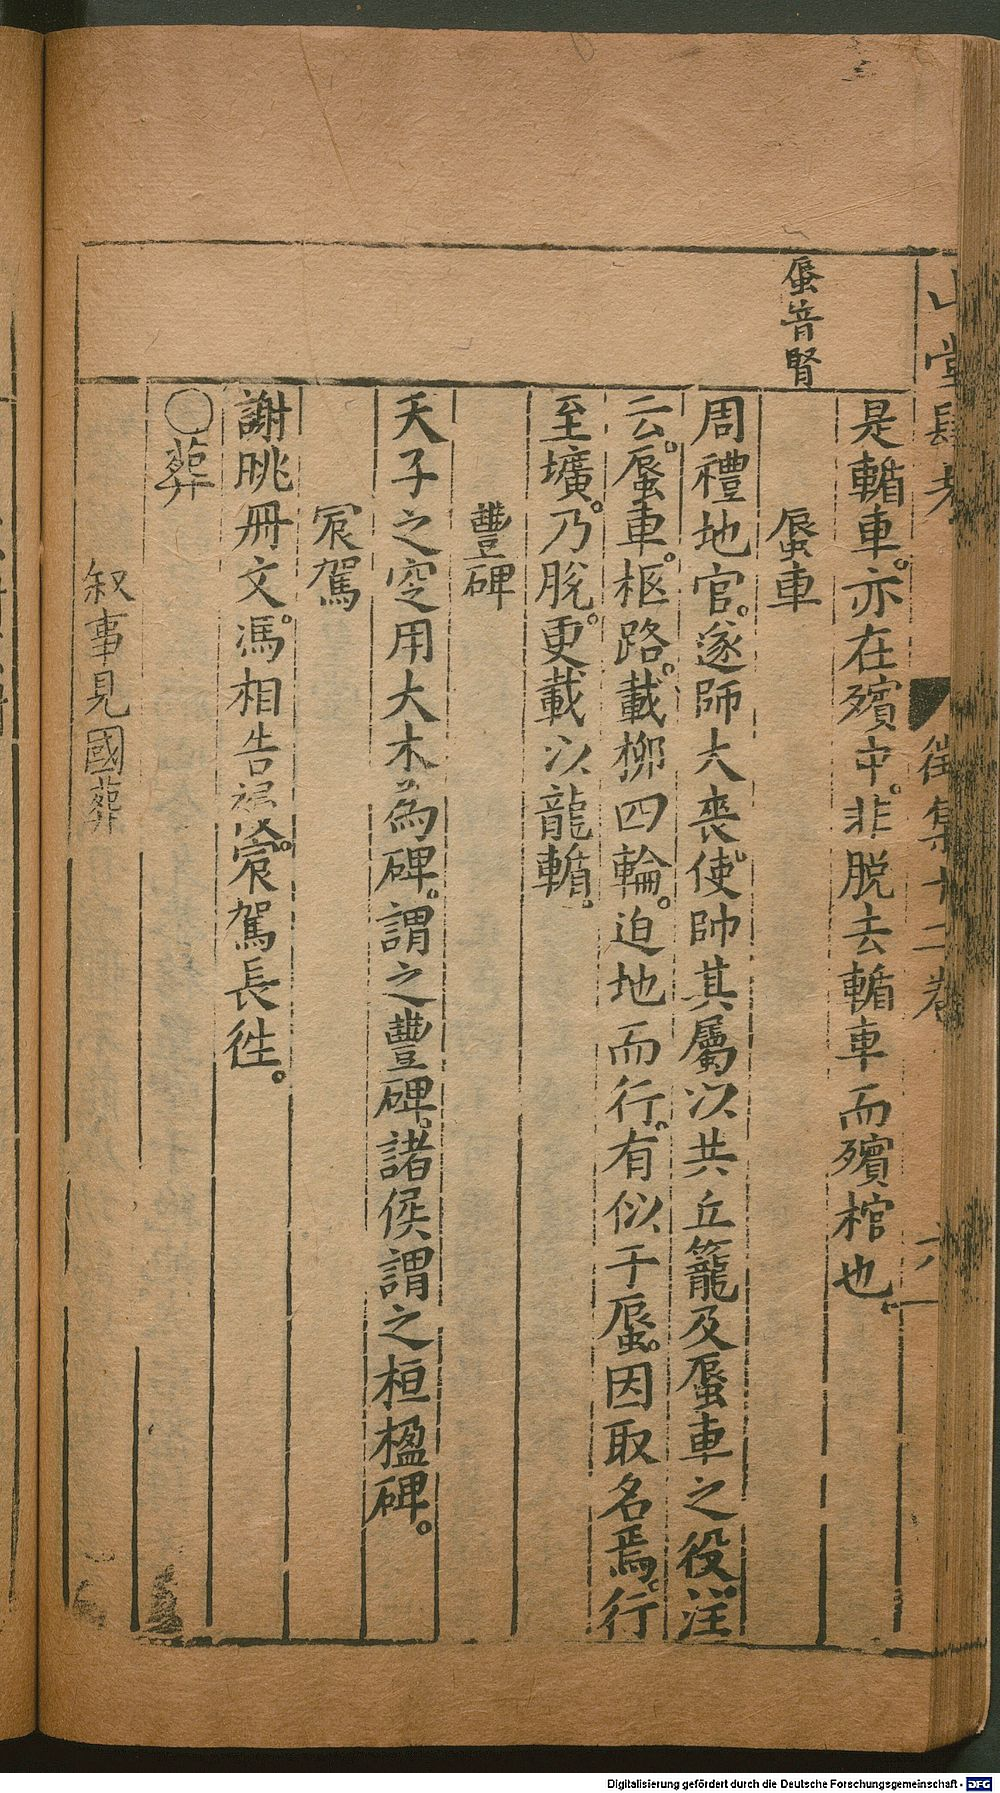 山堂肆考
徵集十二卷
六
蜃音腎
是輴車。亦在殯中。非脱去輴車而殯棺也。
蜃車
周禮地官。遂師大喪。使帥其屬以共丘籠及蜃車之役。注
云。蜃車。柩路。載柳四輪。迫地而行。有似于蜃。因取名焉。行
至壙。乃脫。更載以龍輴。
豐碑
天子之窆用大木為碑。謂之豐碑。諸侯謂之桓楹碑。
宸駕
謝朓冊文。馮相告祲。宸駕長徃。
○葬
叙事見國葬
Digitalisierung gefördert durch die Deutsche Forschungsgemeinschaft - DFG